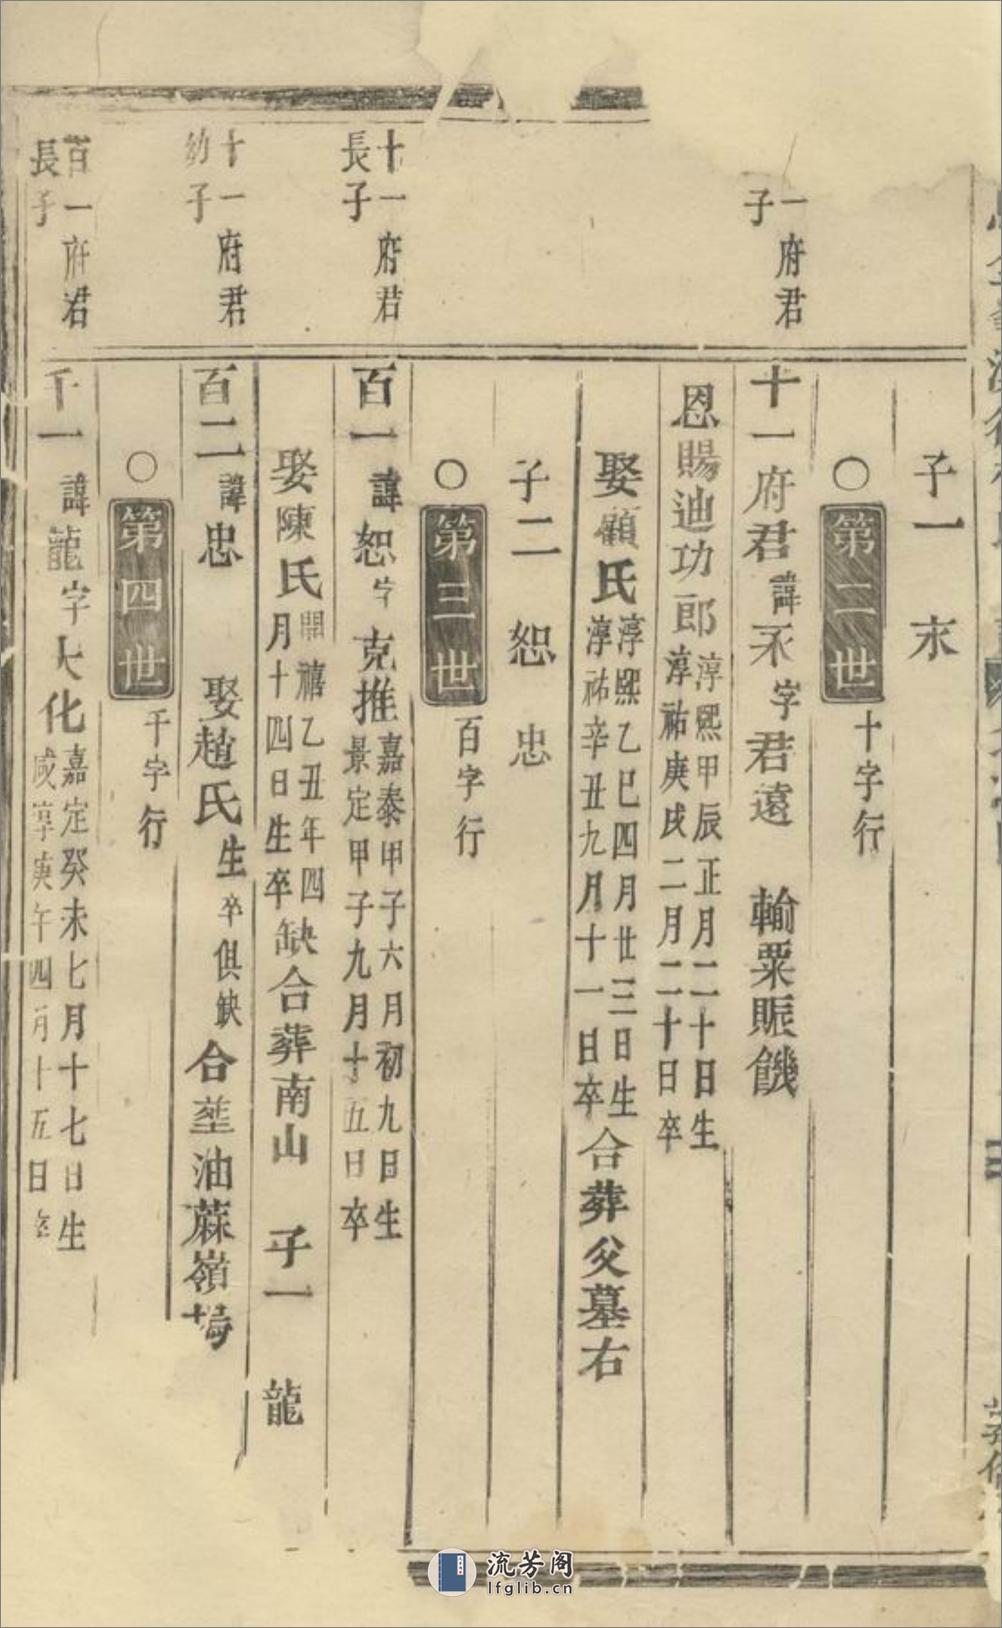 子一 末
○第二世 十字行
一府君
子
十一府君 諱不 字君遠 輸粟賑饑
恩賜迪功郎 淳熙甲辰正月二十日生
淳祐庚戌二月二十日卒
娶顧氏 淳熙乙巳四月廿三日生
淳祐辛丑九月十一日卒 合葬父墓右
子二 恕 忠
○第三世 百字行
十一府君
長子
百一 諱恕 字克推 嘉泰甲子六月初九日生
景定甲子九月十五日卒
娶陳氏 開禧乙丑年四
月十四日生卒缺 合葬南山 子一 龍
十一府君
幼子
百二 諱忠 娶趙氏 生卒俱缺 合塟油蔴嶺塆
○第四世 千字行
百一府君
長子
千一 諱龍 字大化 嘉定癸未七月十七日生
咸享庚午四月十五日
流芳阁
lfglib.cn